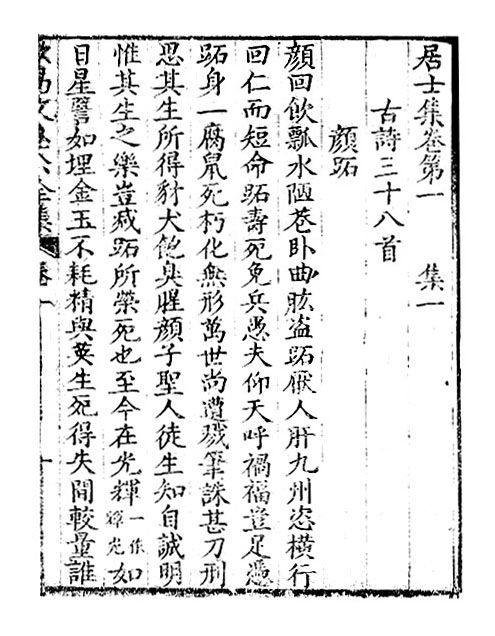 居士集卷第一　集一
古詩三十八首
顔跖
顔回飲瓢水陋巷卧曲肱盗跖厭人肝九州恣橫行
回仁而短命跖壽死免兵愚夫仰天呼禍福豈足憑
跖身一腐鼠死朽化無形萬世尚遭戮筆誅甚刀刑
思其生所得豺犬飽臭腥顔子聖人徒生知自誠明
惟其生之樂豈减跖所榮死也至今在光輝一作輝光如
日星譬如埋金玉不耗精與英生死得失間較量誰
全集　卷一